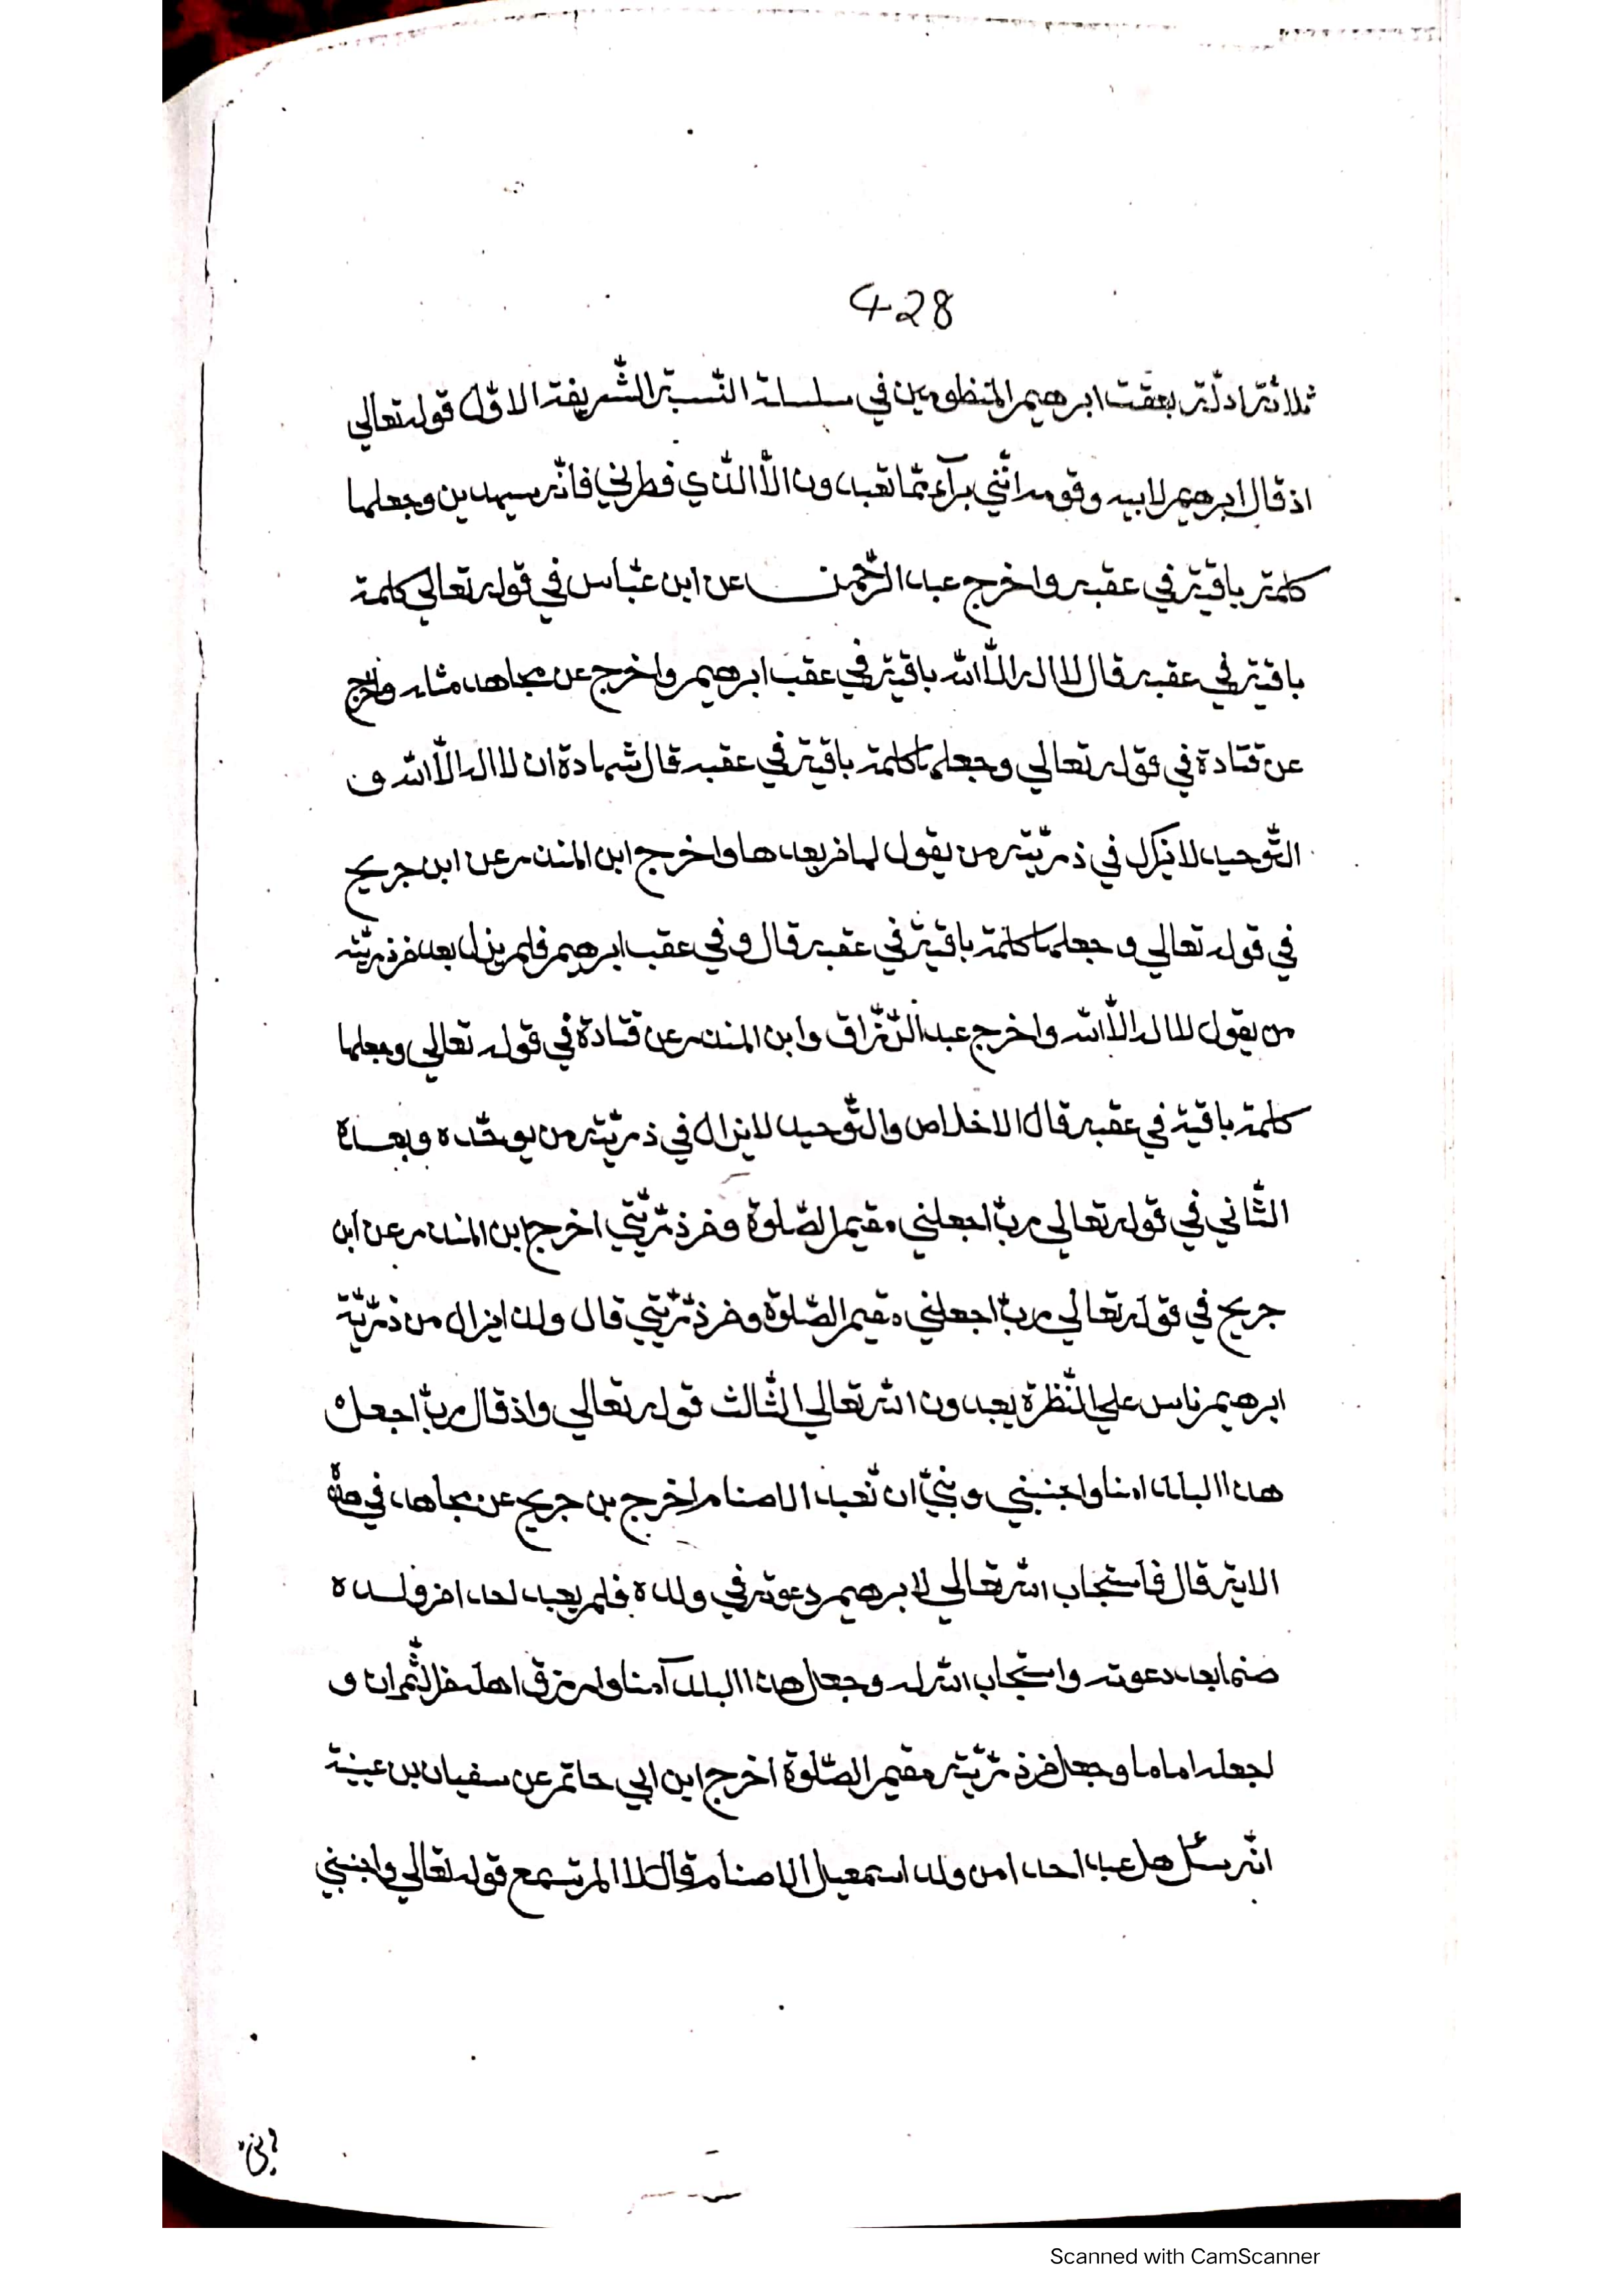 428
ثلاثة ادلّة بعقب ابرهيم المنظومين في سلسلة النّسبة الشّريفة الاوّل قوله تعالي
اذ قال ابرهيم لابيه وقومه انّني برآء ممّا تعبدون الّا الذي فطرني فانّه سيهدين وجعلها
كلمة باقية في عقبه واخرج عبد الرّحمن عن ابن عبّاس في قوله تعالي كلمة
باقية في عقبه قال لا اله الّا الله باقية في عقب ابرهيم واخرج عن مجاهد مثله واخرج
عن قتادة في قوله تعالي وجعلها كلمة باقية في عقبه قال شهادة ان لا اله الّا الله و
التّوحيد لا يزل في ذريّته من يقول لها من بعدها واخرج ابن المنذر عن ابن جريح
في قوله تعالي وجعلها كلمة باقية في عقبه قال وفي عقب ابرهيم فلم يزل بعد من ذريّته
من يقول لا اله الّا الله واخرج عبد الرّزّاق وابن المنذر عن قتادة في قوله تعالي وجعلها
كلمة باقية في عقبه قال الاخلاص والتّوحيد لا يزال في ذريّته من يوحّده ويعبده
الثّاني في قوله تعالي ربّ اجعلني مقيم الصّلوة ومن ذرّيّتي اخرج ابن المنذر عن ابن
جريح في قوله تعالي ربّ اجعلني مقيم الصّلوة ومن ذرّيّتي قال ولن ايزال من ذرّيّة
ابرهيم ناس علي النّظرة يعبدون الله تعالي الثّالث قوله تعالي واذ قال ربّ اجعل
هذا البلد امنا واجنبني وبنيّ ان نّعبد الاصنام اخرج بن جريح عن مجاهد في هذه
الاية قال فاستجاب الله تعالي لابرهيم دعوته في ولده فلم يعبد احد من ولده
صنما بعد دعوته واستجاب الله له وجعل هذا البلد آمنا وله رزق اهله من الثّمران و
لجعله اماما وجعل من ذرّيّته مقيم الصّلوة اخرج ابن ابي حاتم عن سفيان بن عيينة
انّه سئل هل عبد احد من ولد اسمعيل الاصنام قال لا الم تسمع قوله تعالي واجنبني
Scanned with CamScanner